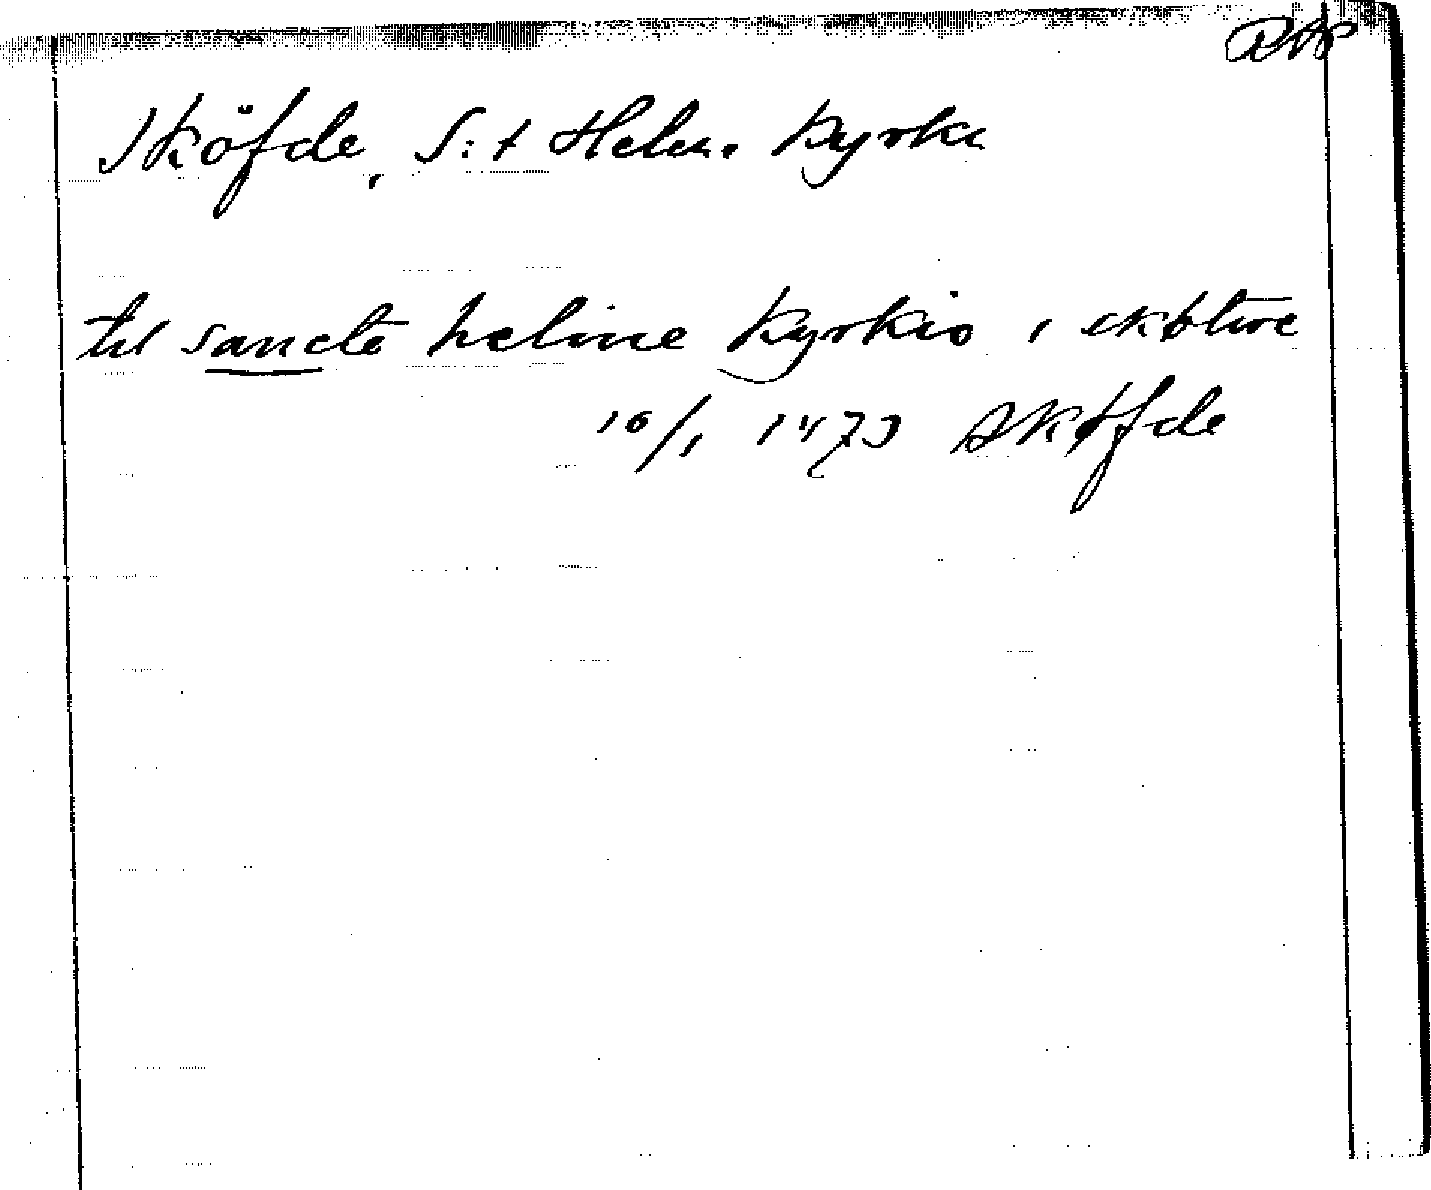 RAP
Sköfde, S:t Helen. Kyrka
til sancte heline kyrkio i skøtwe
10/1 1473 Skøfde